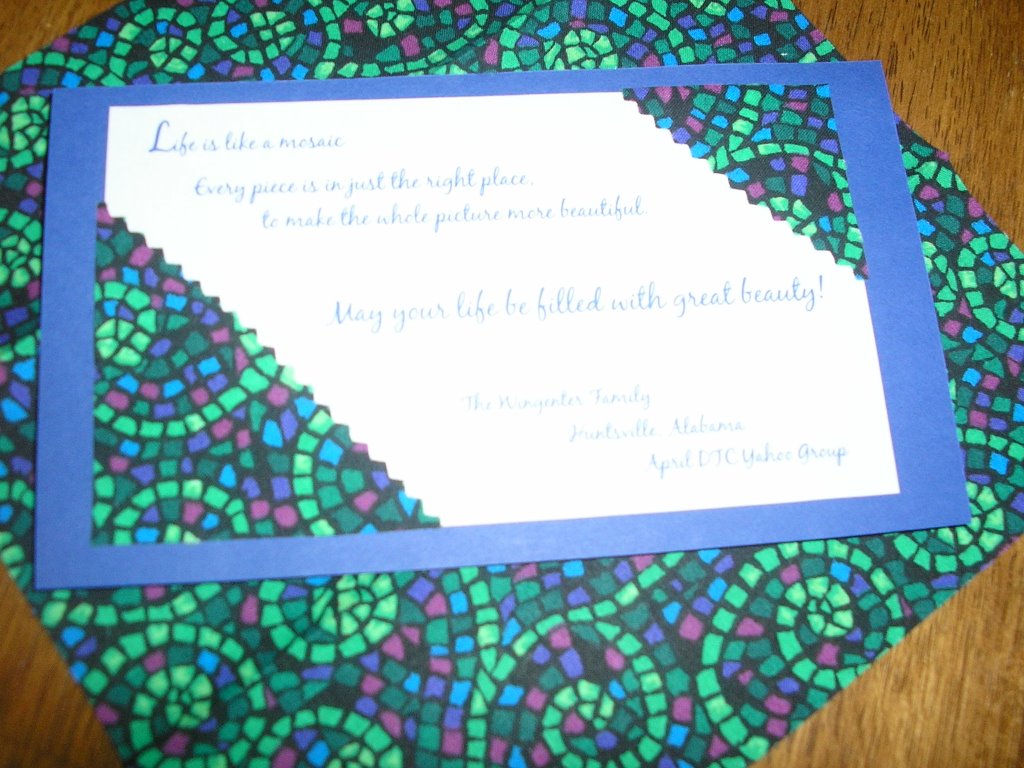 Life is like a mosaic
Every piece is in just the right place,
to make the whole picture more beautiful.
May your life be filled with great beauty!
The Wingenter Family
Huntsville, Alabama
April DTC Yahoo Group